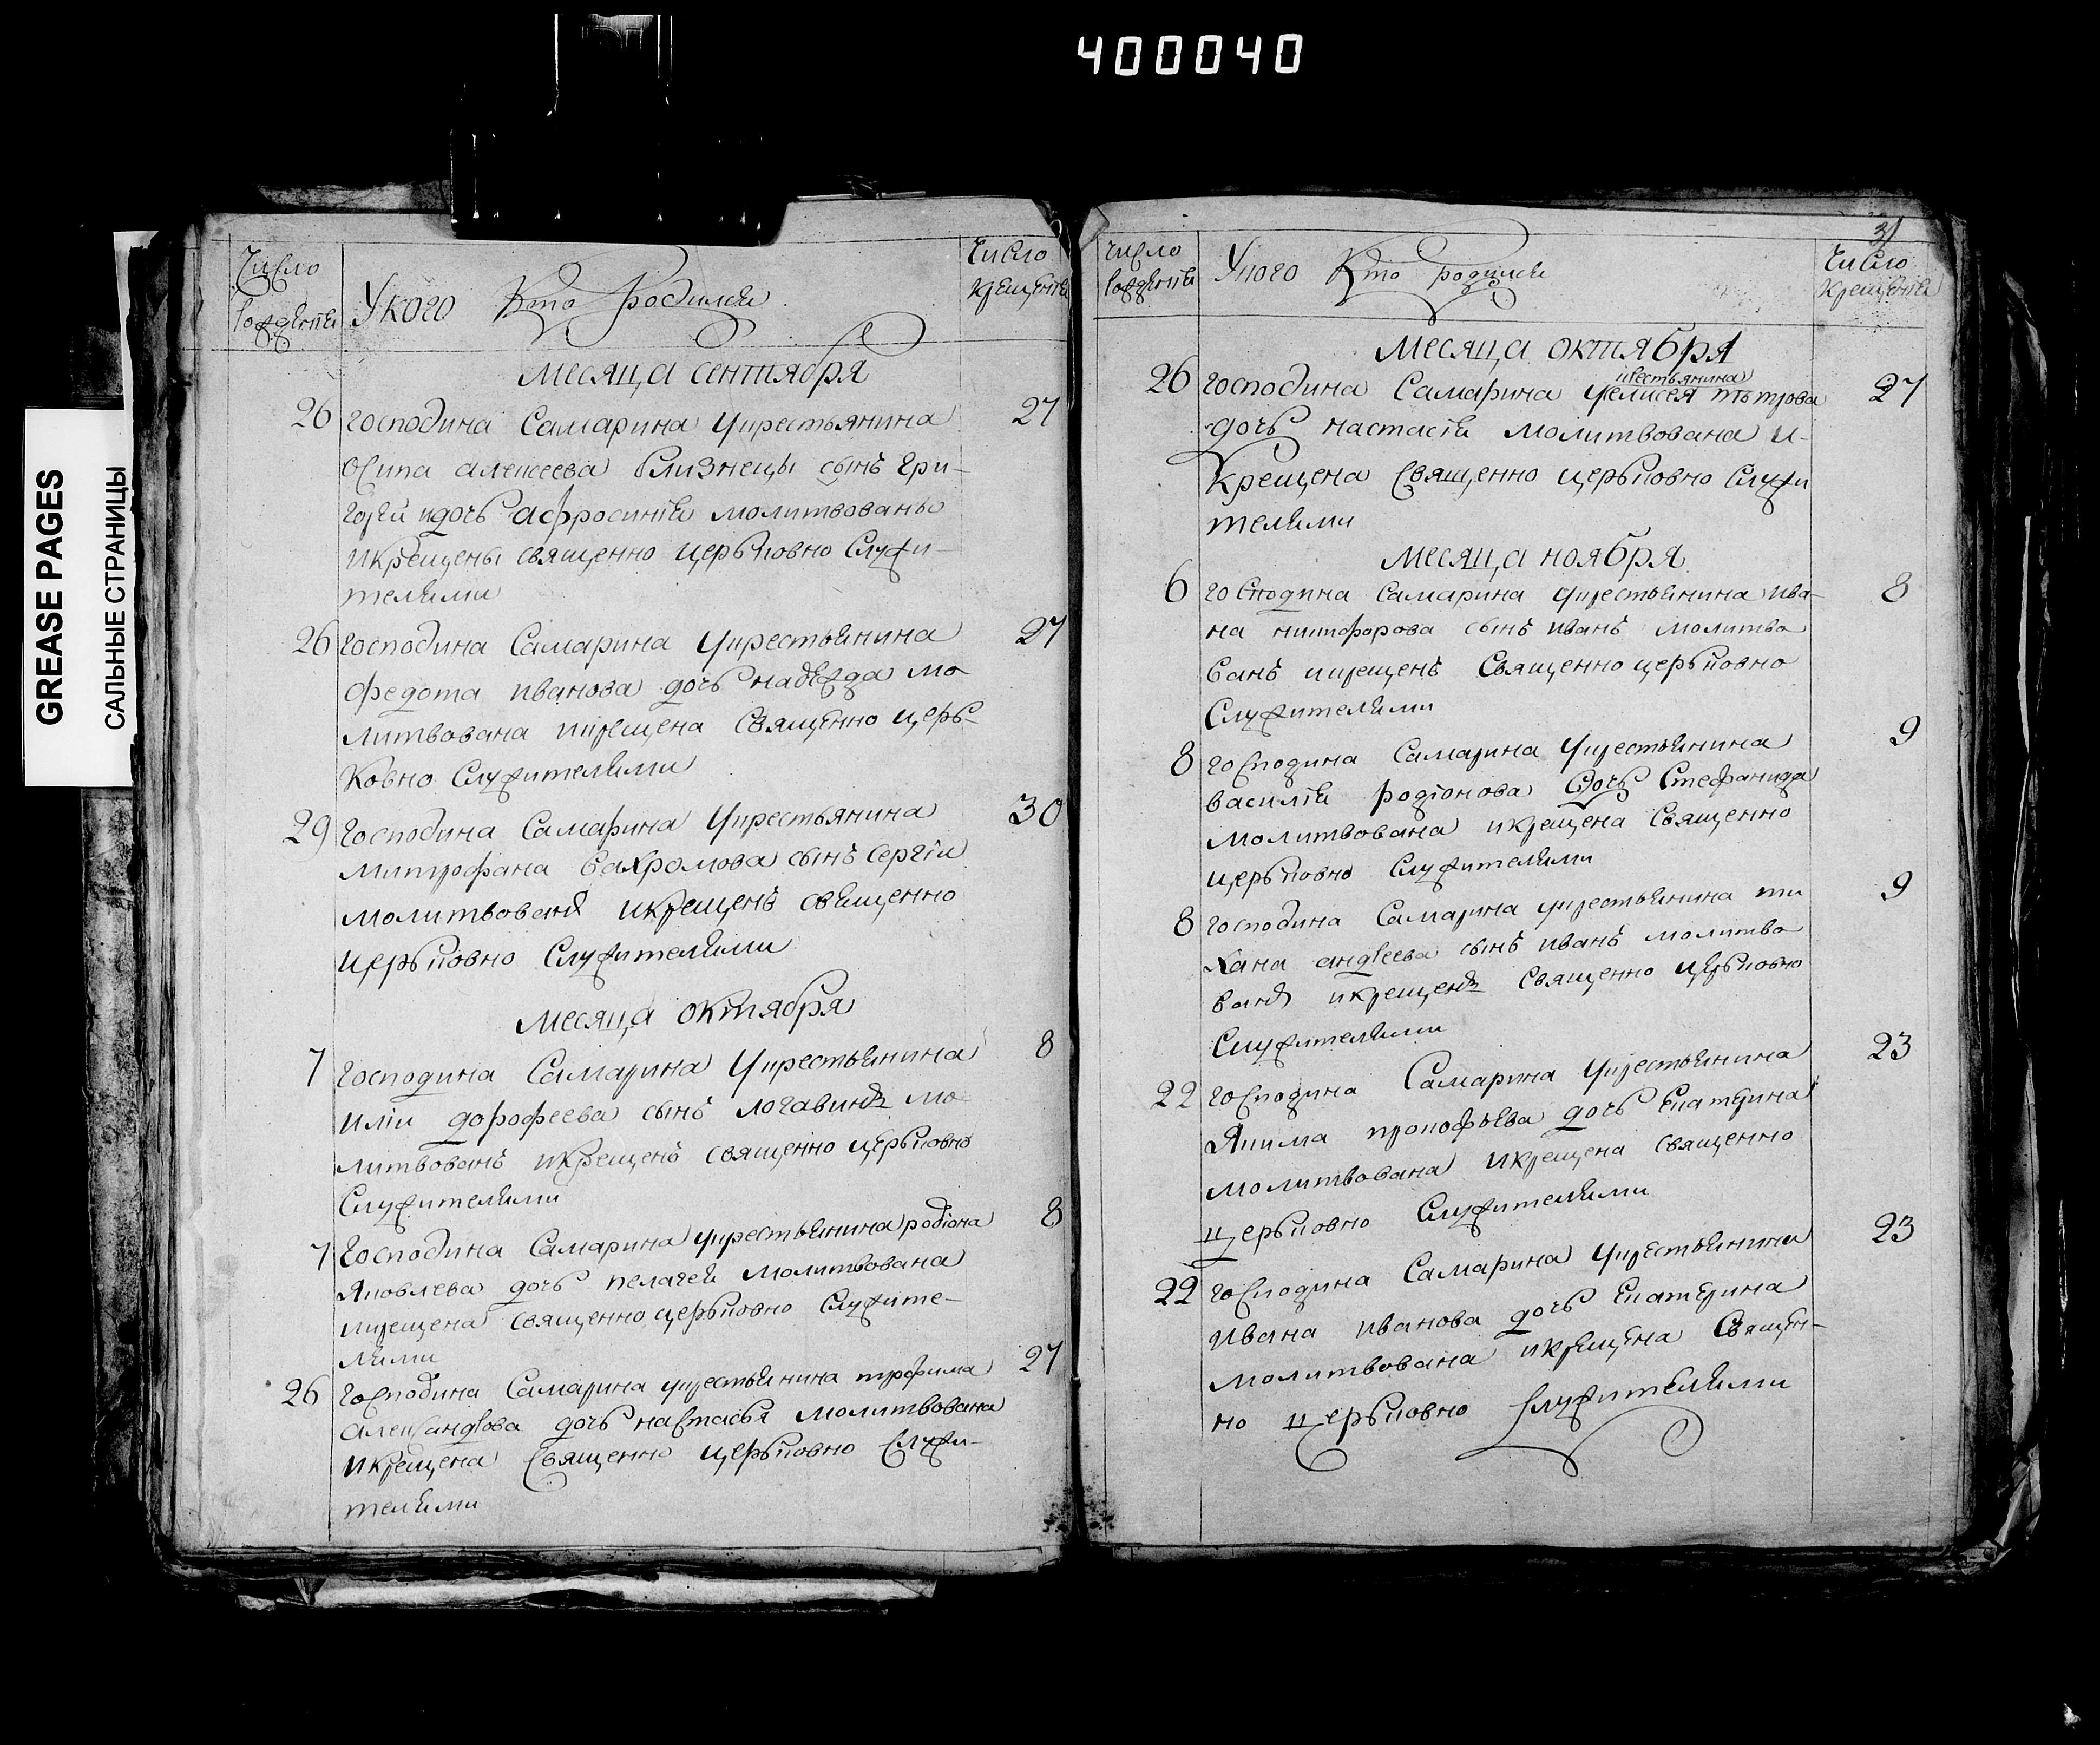 400040
GREASE PAGES
САЛЬНЫЕ СТРАНИЦЫ
Число
рожденiя
У кого Кто родился
Число
крещенiя
Месяца сентября
26 господина Самарина укрестьянина 27
осипа алексеева близнецы сынъ гри-
горей идочь афросинiя молитвованы
икрещены священно церьковно служи-
телями
26 господина Самарина укрестьянина 27
федота иванова дочь надежда мо
литвована икрещена священно церь-
ковно служителями
29 господина Самарина укрестьянина 30
митрофана вахромова сынъ сергiи
молитвованъ икрещенъ священно
церьковно служителями
Месяца октября
7 господина Самарина укрестьянина 8
илiи дорофеева сынъ логавинъ мо
литвованъ икрещенъ священно церьковно
служителями
7 господина Самарина укрестьянина родiона 8
яковлева дочь пелагея молитвована
икрещена священно церьковно служите-
лями
26 господина Самарина укрестьянина трофима 27
александрова дочь настасья молитвована
икрещена священно церьковно служи-
телями
31
Число
рожденiя
У кого Кто родился
Число
крещенiя
Месяца октября
крестьянина
26 господина Самарина уелисея петрова 27
дочь настасiя молитвована и-
крещена священно церьковно служи
телями
Месяца ноября
6 господина Самарина укрестьянина ива- 8
на никифорова сынъ иванъ молитво
ванъ икрещенъ священно церьковно
служителями
8 господина Самарина укрестьянина 9
василiя родiонова дочь Стефанида
молитвована икрещена священно
церьковно служителями
8 господина Самарина укрестьянина ти 9
хана андреева сынъ иванъ молитво
ванъ икрещенъ священно церьковно
служителями
22 господина Самарина укрестьянина 23
якима прокофьева дочь екатерина
молитвована икрещена священно
церьковно служителями
22 господина Самарина укрестьянина 23
ивана иванова дочь екатерина
молитвована икрещена священ-
но церьковно служителями